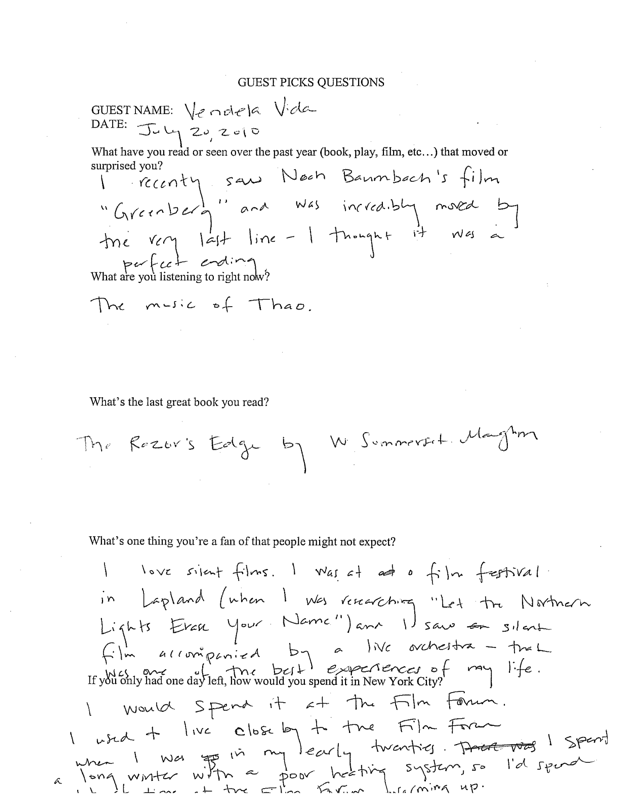 GUEST PICKS QUESTIONS
GUEST NAME: Vendela Vida
DATE: July 20, 2010
What have you read or seen over the past year (book, play, film, etc…) that moved or
surprised you?
I recently saw Noah Baumbach's film
"Greenberg" and was incredibly moved by
the very last line – I thought it was a
perfect ending
What are you listening to right now?
The music of Thao.
What's the last great book you read?
The Razor's Edge by W Summerset Maughm
What's one thing you're a fan of that people might not expect?
I love silent films. I was at a film festival
in Lapland (when I was researching "Let the Northern
Lights Erase Your Name") and I saw a silent
film accompanied by a live orchestra – that
was one of the best experiences of my life.
If you only had one day left, how would you spend it in New York City?
I would spend it at the Film Forum.
I used to live close by to the Film Forum
when I was in my early twenties. I spent
a long winter with a poor heating system, so I'd spend
time at the Film Forum warming up.